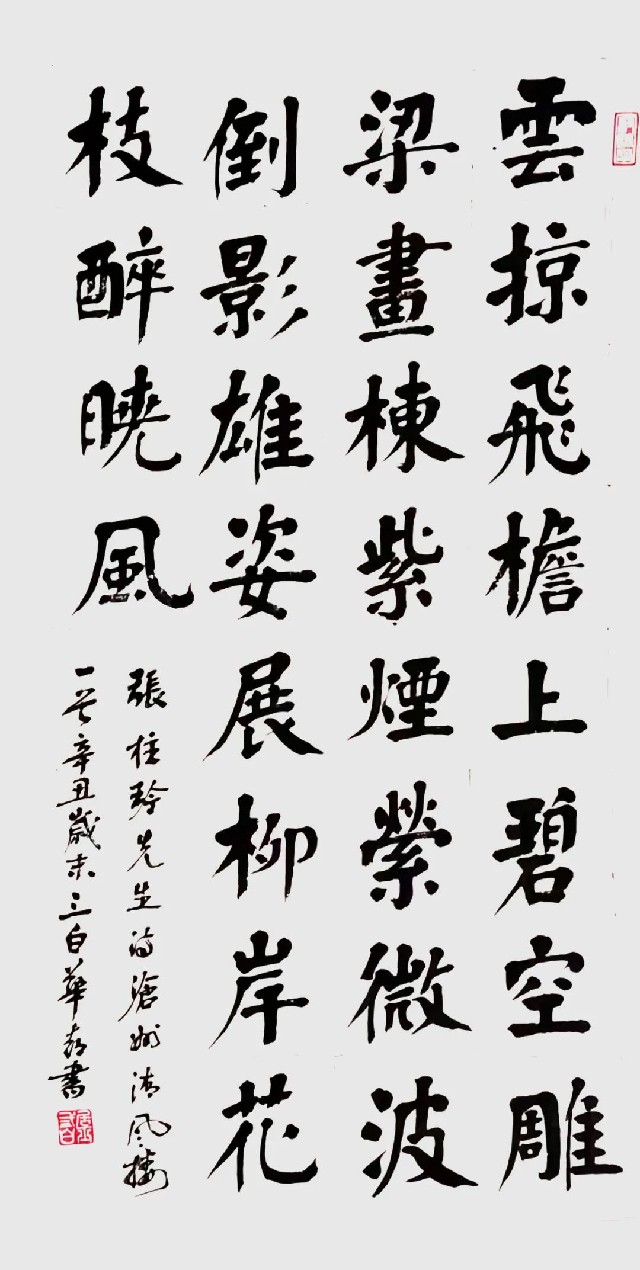 雲掠飛檐上碧空雕
梁畫棟紫煙縈微波
倒影雄姿展柳岸花
枝醉曉風
張柱玲先生詩滄州清風樓
一首辛丑歲末三白華書